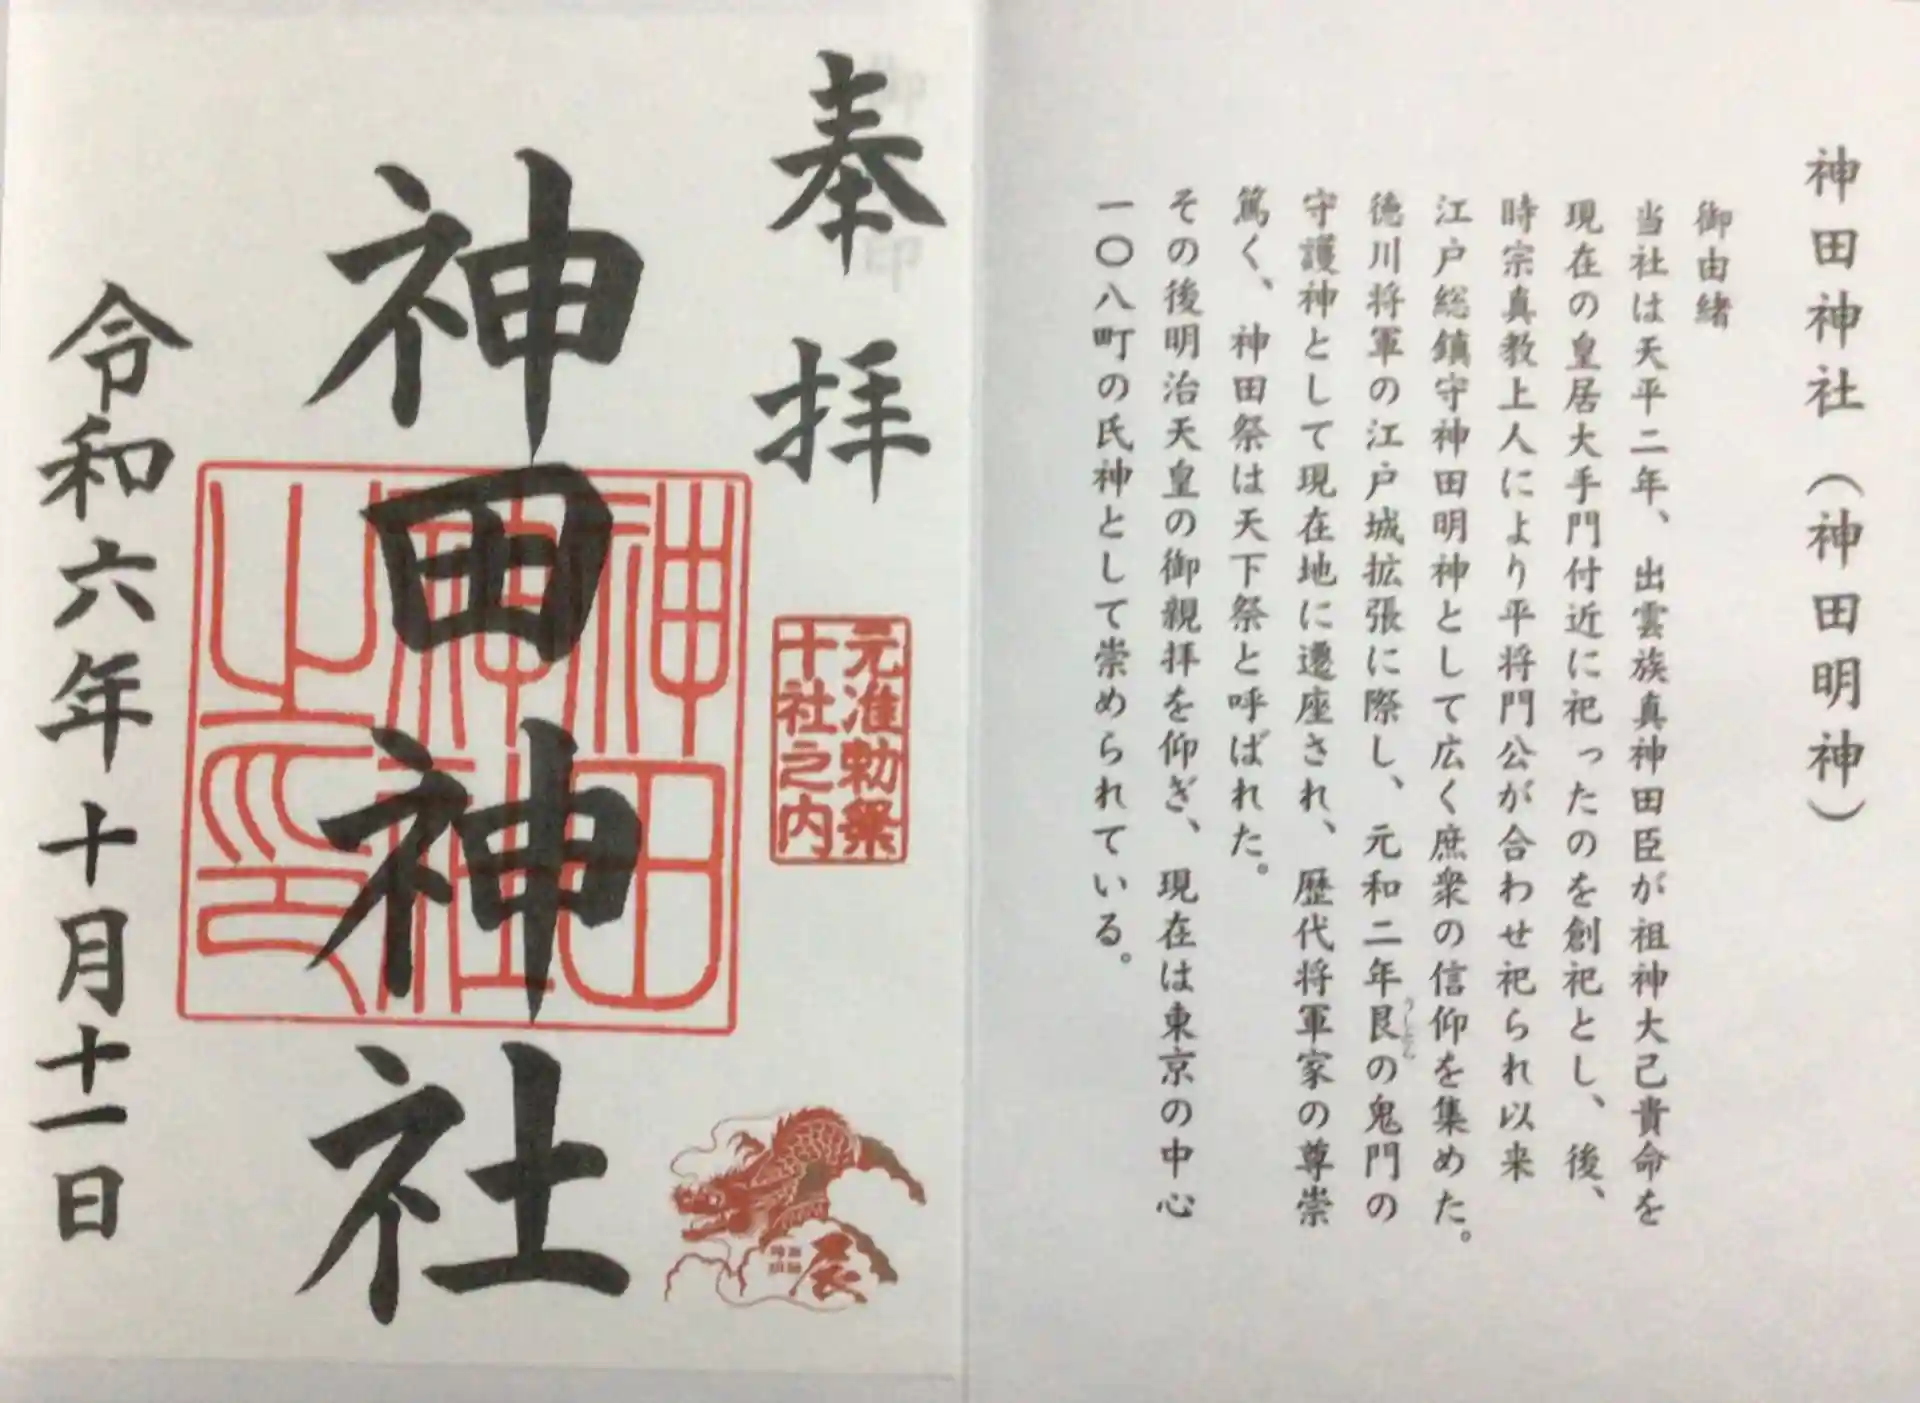 神田神社(神田明神)
御由緒
当社は天平二年、出雲族真神田臣が祖神大己貴命を
現在の皇居大手門付近に祀ったのを創祀とし、後、
時宗真教上人により平将門公が合わせ祀られ以来
江戸総鎮守神田明神として広く庶衆の信仰を集めた。
徳川将軍の江戸城拡張に際し、元和二年艮の鬼門の
うしとら
守護神として現在地に遷座され、歴代将軍家の尊崇
篤く、神田祭は天下祭と呼ばれた。
その後明治天皇の御親拝を仰ぎ、現在は東京の中心
一〇八町の氏神として崇められている。
奉拝
元准勅祭
十社之内
辰
神田神社
神田
神社
之印
令和六年十月十一日